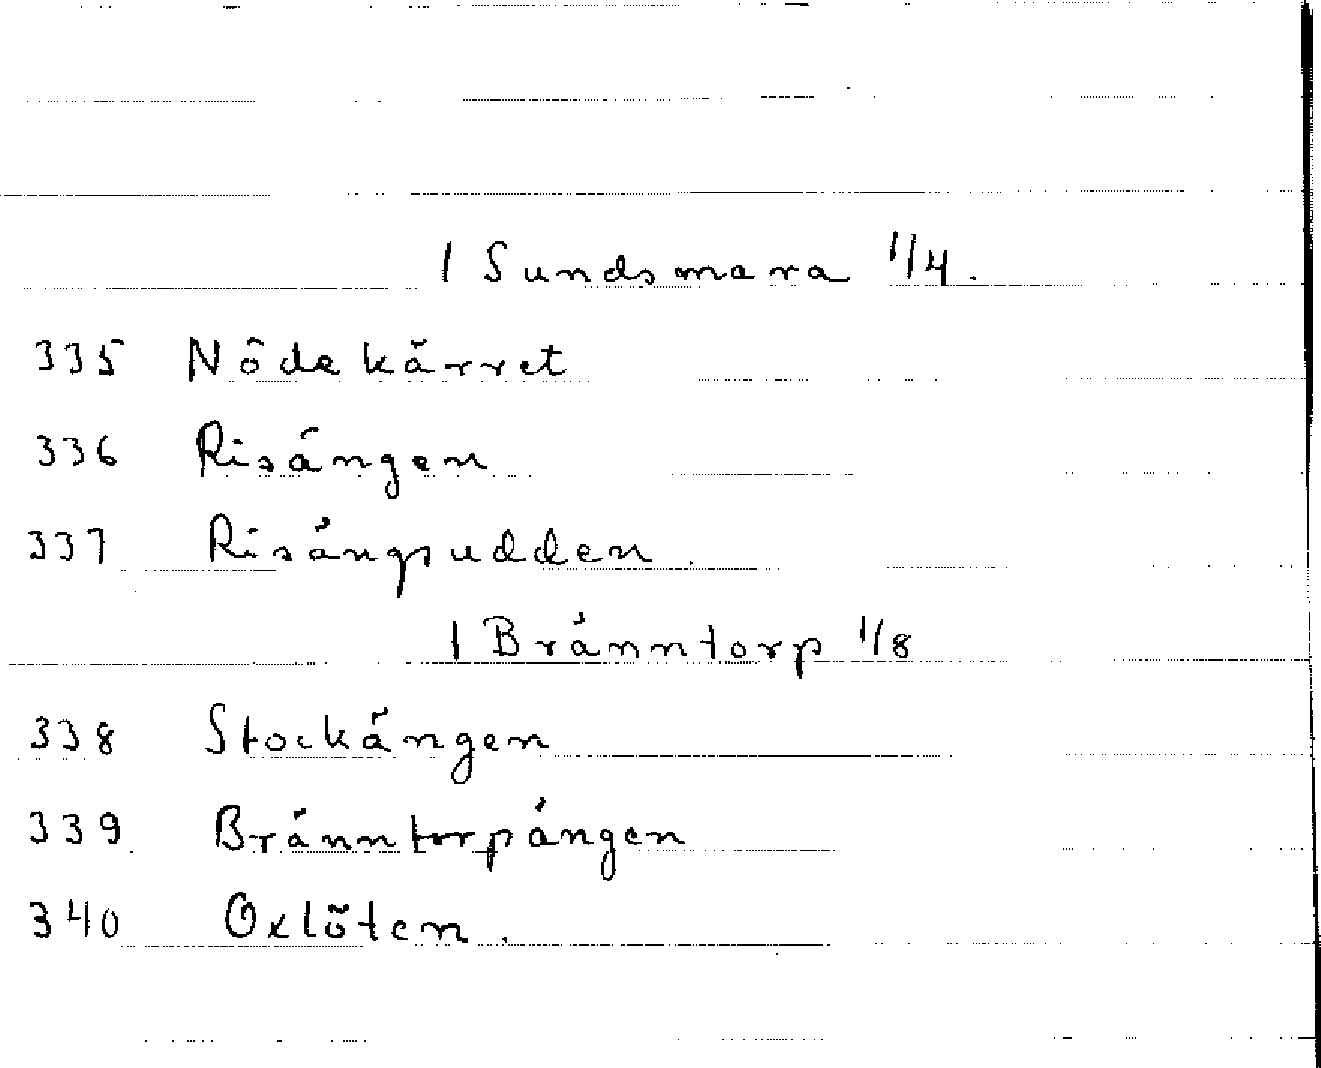 1 Sundsmara 1/4.
335 Nödekärret
336 Risängen
337 Risängsudden.
1 Bränntorp 1/8
338 Stockängen
339 Bränntorpängen
340 Oxlöten.